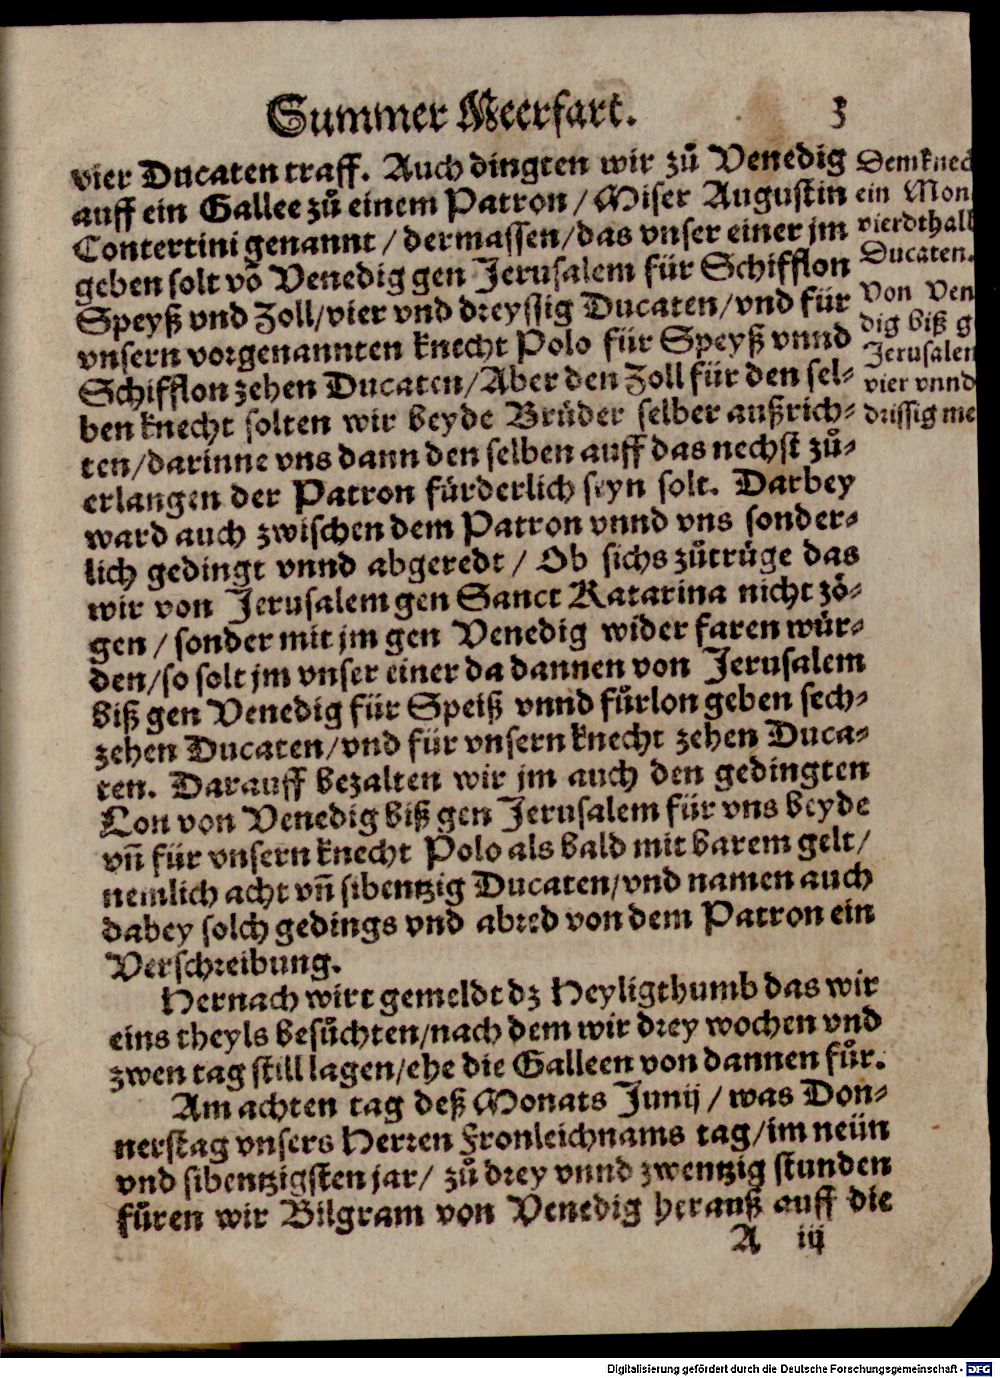 Summer Meerfart. 3
vier Ducaten traff. Auch dingten wir zů Venedig
auff ein Gallee zů einem Patron / Miser Augustin
Contertini genannt / dermassen/das vnser einer jm
geben solt võ Venedig gen Jerusalem für Schifflon
Speyß vnd Zoll/vier vnd dreyssig Ducaten/vnd für
vnsern vorgenannten knecht Polo für Speyß vnnd
Schifflon zehen Ducaten/Aber den Zoll für den sel-
ben knecht solten wir beyde Brüder selber außrich-
ten/darinne vns dann den selben auff das nechst zů-
erlangen der Patron fürderlich seyn solt. Darbey
ward auch zwischen dem Patron vnnd vns sonder-
lich gedingt vnnd abgeredt / Ob sichs zůtrüge das
wir von Jerusalem gen Sanct Katarina nicht zö-
gen / sonder mit jm gen Venedig wider faren wür-
den/so solt jm vnser einer da dannen von Jerusalem
biß gen Venedig für Speiß vnnd fůrlon geben sech-
zehen Ducaten/vnd für vnsern knecht zehen Duca-
ten. Darauff bezalten wir jm auch den gedingten
Lon von Venedig biß gen Jerusalem für vns beyde
vñ für vnsern knecht Polo als bald mit barem gelt/
nemlich acht vñ sibentzig Ducaten/vnd namen auch
dabey solch gedings vnd abred von dem Patron ein
Verschreibung.
Hernach wirt gemeldt dz Heyligthumb das wir
eins theyls besůchten/nach dem wir drey wochen vnd
zwen tag still lagen/ehe die Galleen von dannen fůr.
Am achten tag deß Monats Junij / was Don-
nerstag vnsers Herren Fronleichnams tag/im neün
vnd sibentzigsten jar/ zů drey vnnd zwentzig stunden
fůren wir Bilgram von Venedig herauß auff die
A iij
Dem knec
ein Mon
vierdthalb
Ducaten.
Von Ven
dig biß g
Jerusalem
vier vnnd
drissig me
Digitalisierung gefördert durch die Deutsche Forschungsgemeinschaft - DFG